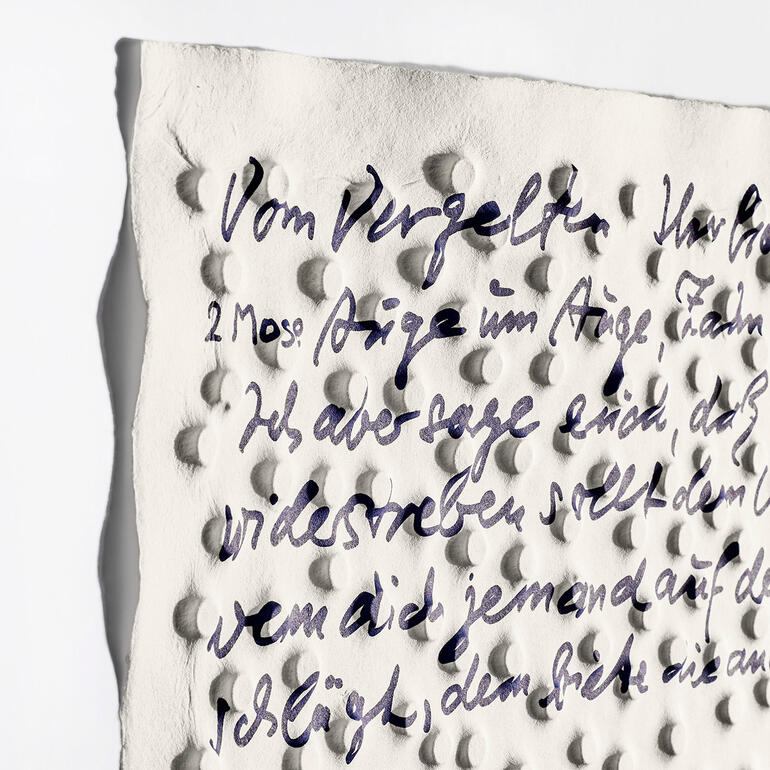 Vom Vergelten Ihr
2 Mose Auge um Auge, Zahn
Ich aber sage euch, daß
widerstreben sollt dem
wenn dich jemand auf
schlägt, dem biete die